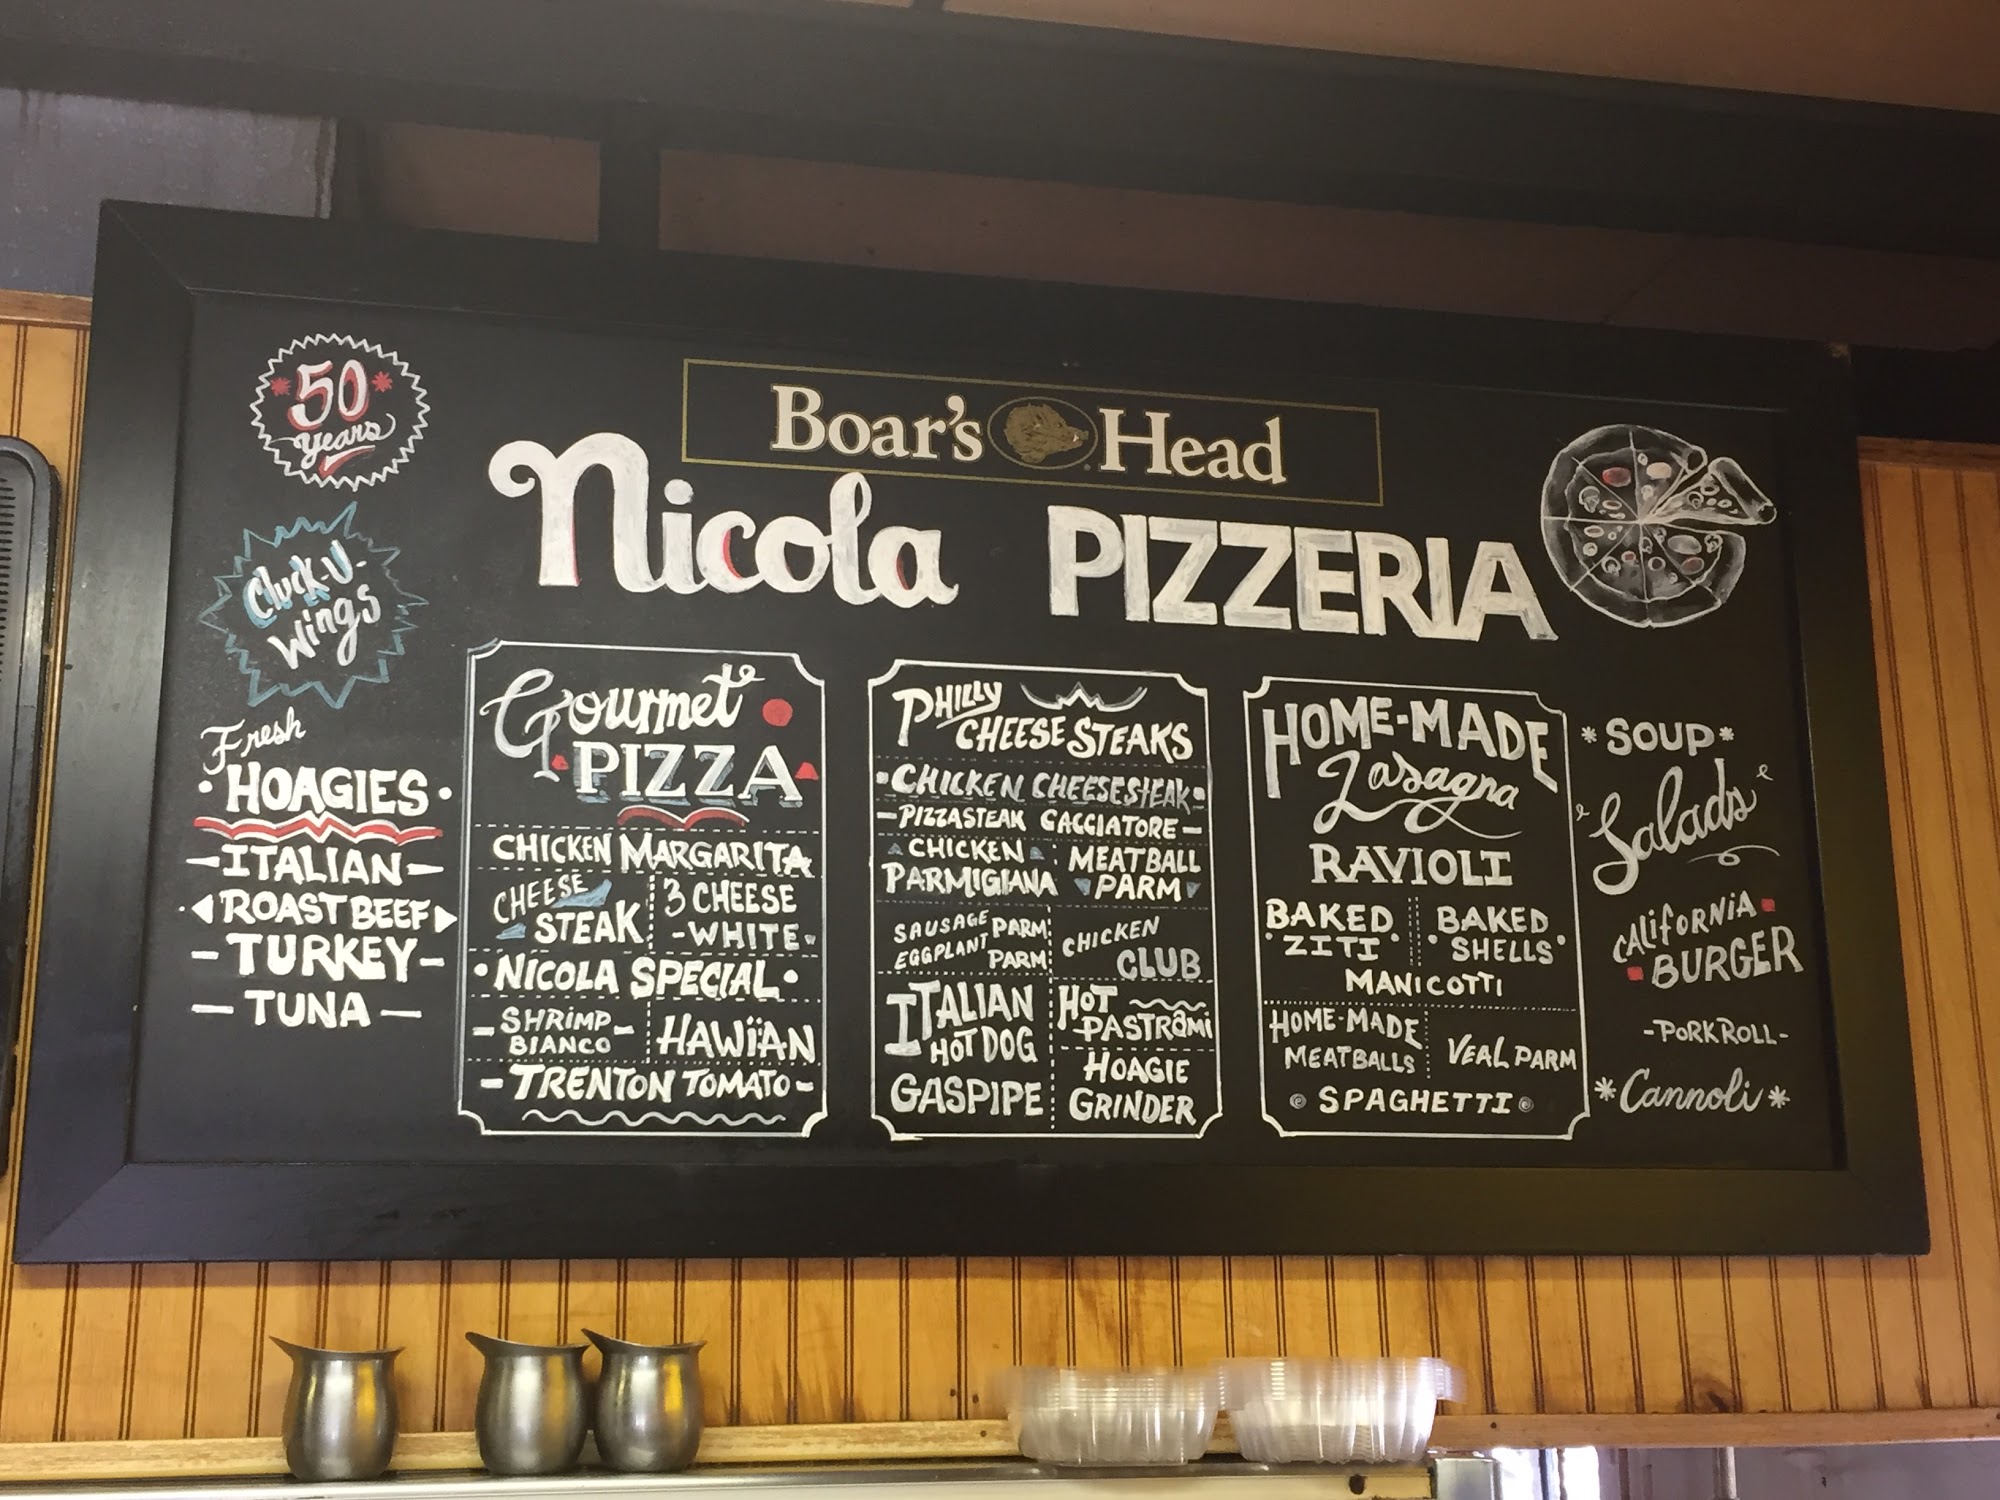 50
years
Boar's Head
Nicola PIZZERIA
Cluck-U-
Wings
Fresh
HOAGIES
ITALIAN
ROAST BEEF
TURKEY
TUNA
Gourmet
PIZZA
CHICKEN MARGARITA
CHEESE
STEAK
3 CHEESE
-WHITE
NICOLA SPECIAL
SHRIMP
BIANCO
HAWÏIAN
TRENTON TOMATO
PHILLY
CHEESE STEAKS
CHICKEN CHEESESTEAK
PIZZASTEAK CACCIATORE
CHICKEN
PARMIGIANA
MEATBALL
PARM
SAUSAGE PARM
EGGPLANT PARM
CHICKEN
CLUB
ITALIAN
HOT DOG
GASPIPE
HOT
PASTRAMI
HOAGIE
GRINDER
HOME-MADE
Lasagna
RAVIOLI
BAKED
ZITI
BAKED
SHELLS
MANICOTTI
HOME-MADE
MEATBALLS
VEAL PARM
SPAGHETTI
*SOUP*
Salads
CALIFORNIA
BURGER
-PORK ROLL-
*Cannoli*